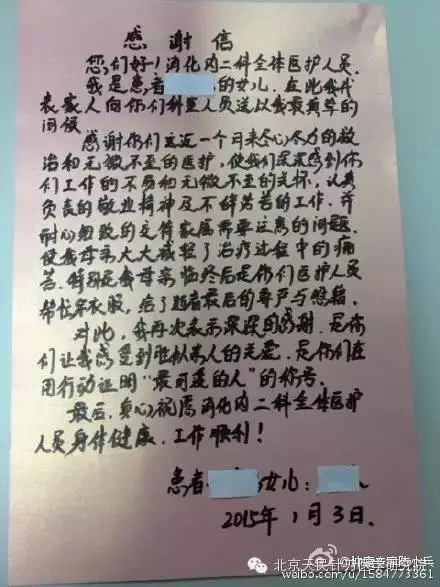 感谢信
您们好！消化内二科全体医护人员．
我是患者的女儿．在此我代
表家人向你们科室人员送以我最真挚的
问候
感谢你们这近一个月来尽心尽力的救
治和无微不至的医护，使我们深深感到你
们工作的不易和无微不至的关怀，认真
负责的敬业精神及不辞劳苦的工作．并
耐心细致的交待家属需要注意的问题．
使我母亲大大减轻了治疗过程中的痛
苦．特别是我母亲临终后是你们医护人员
帮忙穿衣服，给了逝者最后的尊严与慰籍．
对此，我再次表示深深的感谢．是你
们让我感受到胜似亲人的关爱．是你们在
用行动证明“最可爱的人”的称号．
最后．真心祝愿消化内二科全体医护
人员身体健康．工作顺利！
患者 女儿：
2015年1月3日．
北京天民针刀医学研究院
weibo.com/u/1584773361